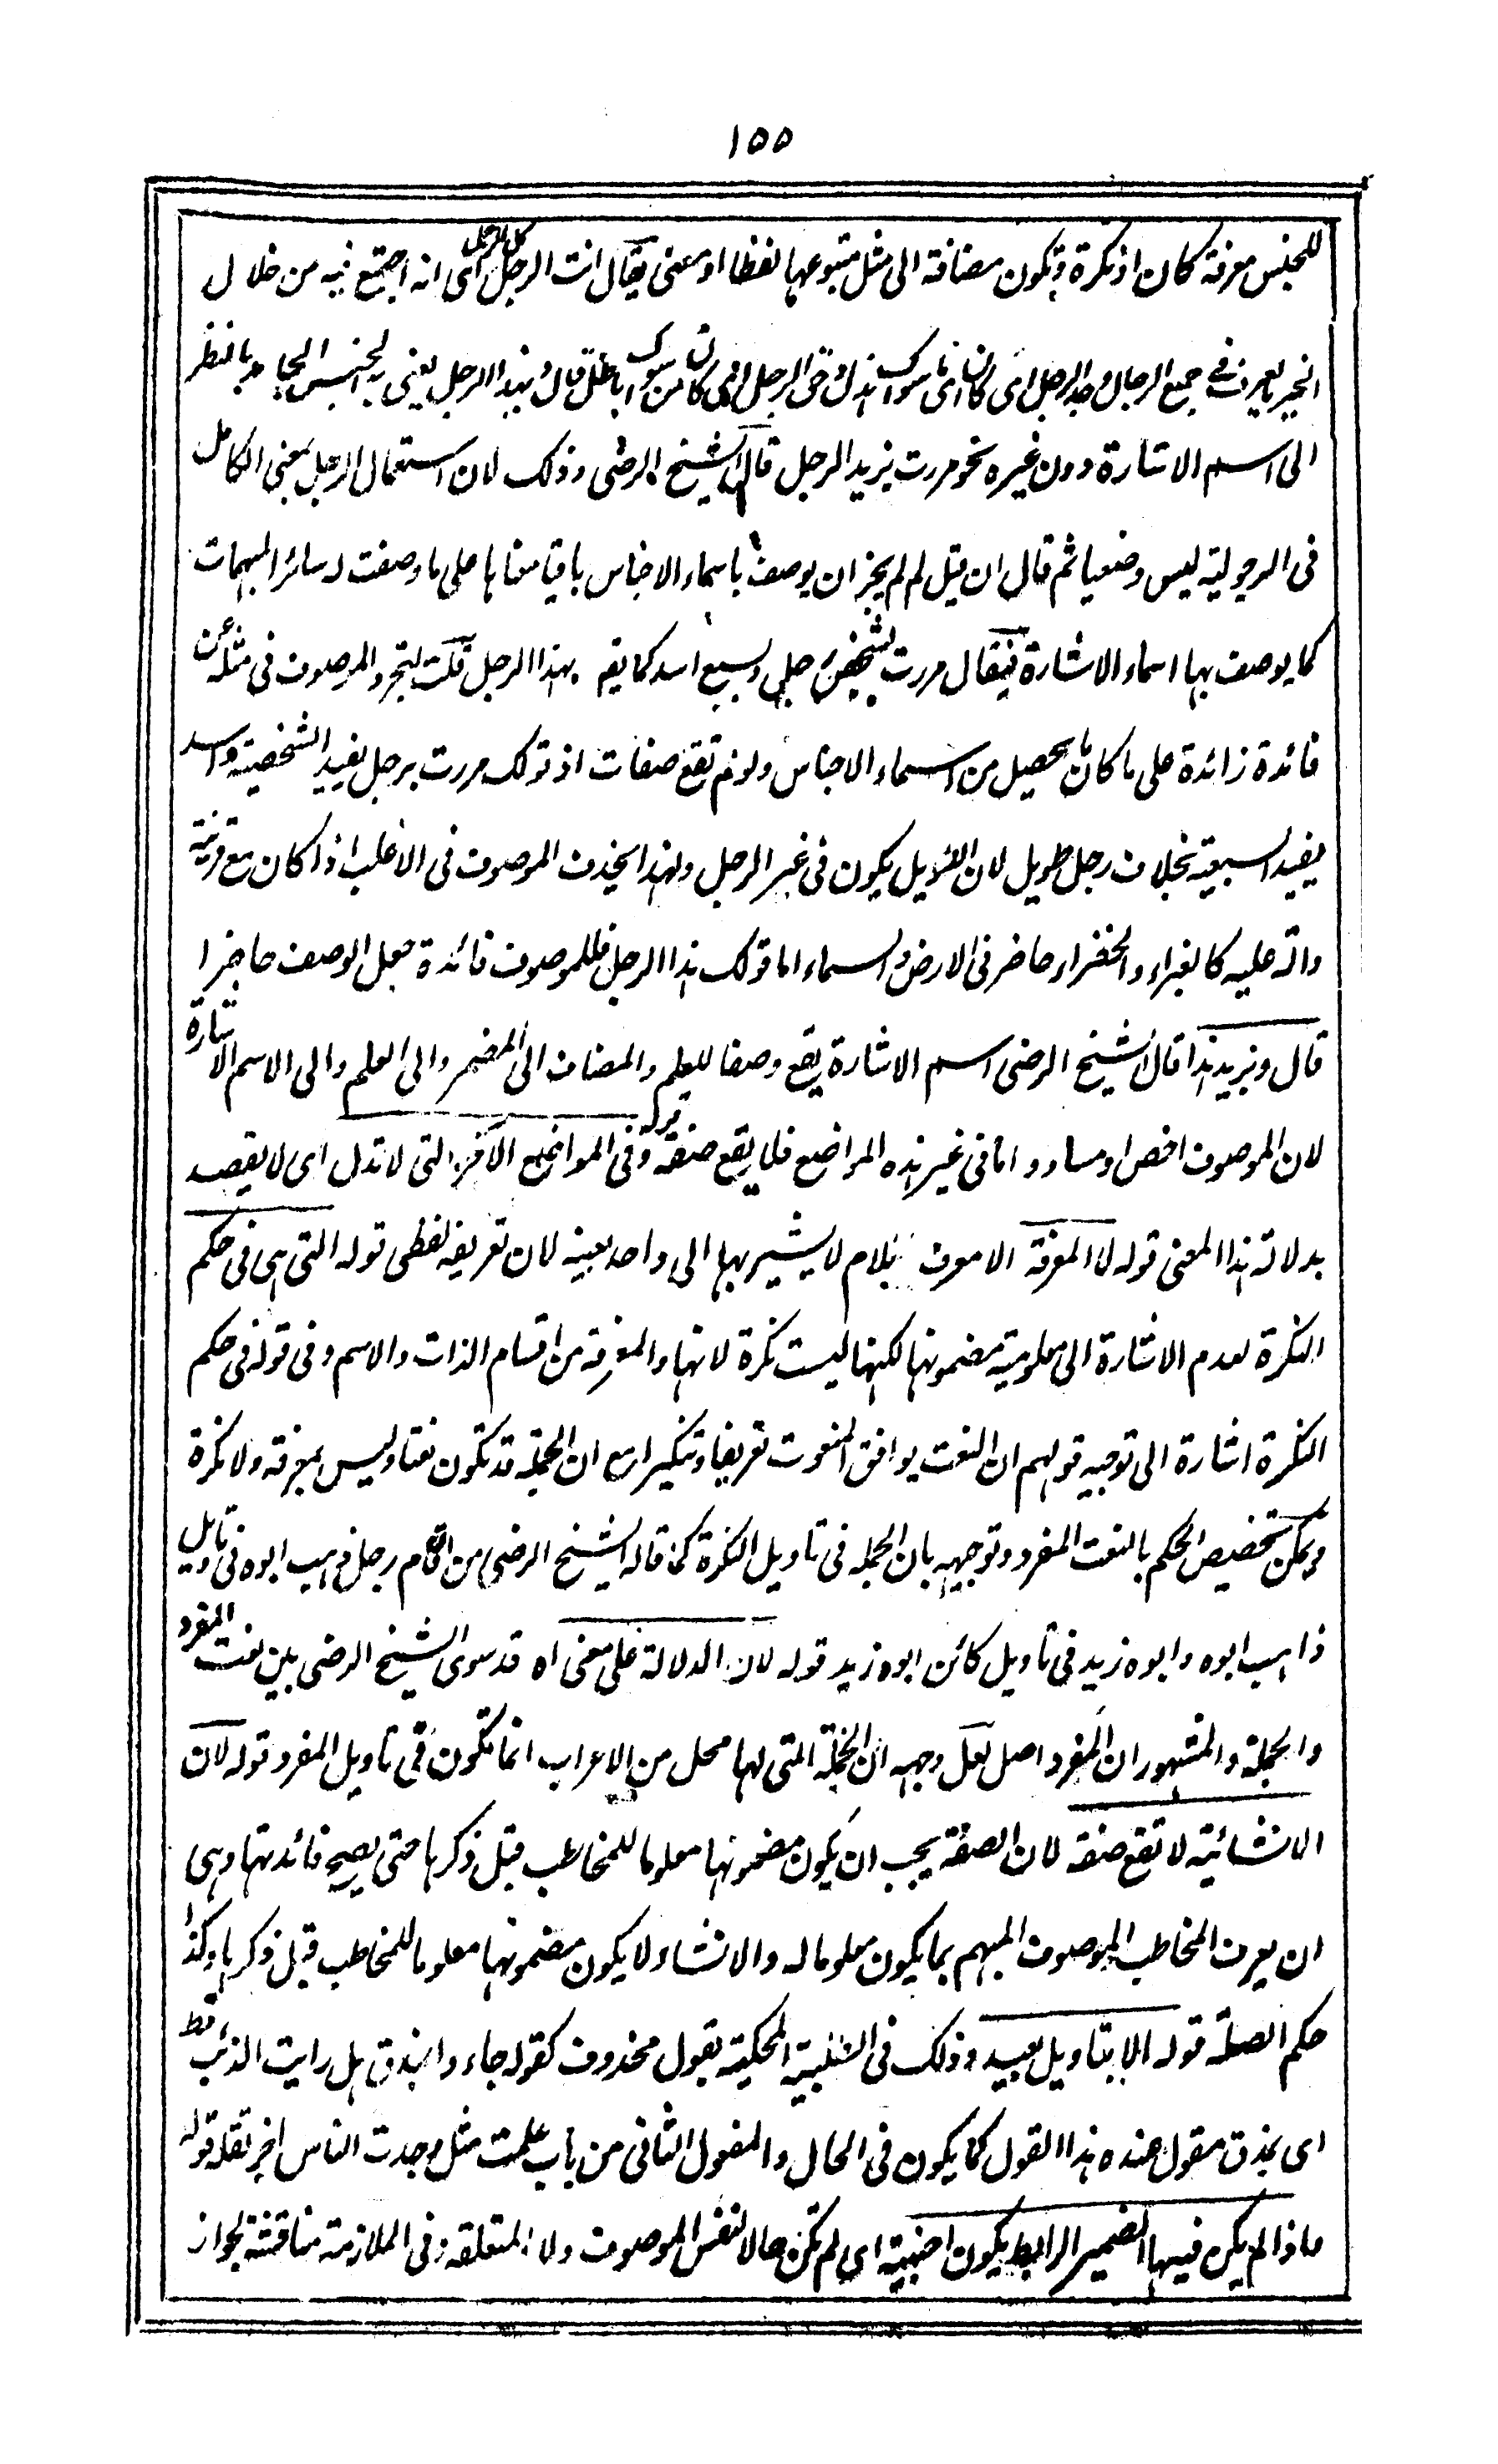 ١٥٥
للجنس معرفة كان او نكرة وتكون مضافة الى مثل متبوعها لفظا او معنى يقال انت الرجل كل الرجل اى انه اجتمع فيه من خلال
الخير ما يعرف فى جميع الرجال وجد الرجل اى كان ما سواك هزل وحق الرجل اى كان من سواك باطل قال وبهذا الرجل يعنى به الجنس الجامد بالنظر
الى اسم الاشارة دون غيره نحو مررت بزيد الرجل قال الشيخ الرضى وذلك لان استعمال الرجل بمعنى الكامل
فى الرجولية ليس وضعيا ثم قال ان قيل لم لم يجز ان يوصف باسماء الاجناس باقيا معناها على ما وضعت له سائر المبهمات
كما يوصف بها اسماء الاشارة فيقال مررت بشخص رجل وبسبع اسد كما يقم بهذا الرجل قلت لتجرد الموصوف فى مثله عن
فائدة زائدة على ما كان يحصل من اسماء الاجناس ولو لم تقع صفات اذ قولك مررت برجل يفيد الشخصية واسد
يفيد السبعية بخلاف رجل طويل لان الطويل يكون فى غير الرجل ولهذا يحذف الموصوف فى الاغلب اذا كان مع قرينة
دالة عليه كالغبراء والخضراء حاضر فى الارض والسماء اما قولك هذا الرجل فللموصوف فائدة جعل الوصف حاضرا
قال وبزيد هذا قال الشيخ الرضى اسم الاشارة يقع وصفا للعلم والمضاف الى المضمر والى العلم والى الاسم الاشارة
لان الموصوف اخص او مساو واما فى غير هذه المواضع فلا يقع صفة قوله وفى المواضع الاخر التى لا تدل اى لا يقصد
بدلالته هذا المعنى قوله لا المعرفة الا معرف بلام لا يشير بها الى واحد بعينه لان تعريفه لفظى قوله التى هى فى حكم
النكرة لعدم الاشارة الى معلومية مضمونها لكنها ليست نكرة لانها والمعرفة من اقسام الذات والاسم وفى قوله فى حكم
النكرة اشارة الى توجيه قولهم ان النعت يوافق المنعوت تعريفا وتنكيرا مع ان الجملة قد تكون نعتا وليس بمعرفة ولا نكرة
ويمكن تخصيص الحكم بالنعت المفرد وتوجيهه بان الجملة فى تاويل النكرة كما قاله الشيخ الرضى من ان قام رجل ذهب ابوه فى تاويل
ذاهب ابوه وابوه زيد فى تاويل كائن ابوه زيد قوله لان الدلالة على معنى اه قد سوى الشيخ الرضى بين نعت المفرد
والجملة والمشهور ان المفرد اصل لعل وجهه ان الجملة التى لها محل من الاعراب انما تكون فى تاويل المفرد قوله لان
الانشائية لا تقع صفة لان الصفة يجب ان يكون مضمونها معلوما للمخاطب قبل ذكرها حتى يصح فائدتها وهى
ان يعرف المخاطب الموصوف المبهم بما يكون معلوما له والانشاء لا يكون مضمونها معلوما للمخاطب قبل ذكرها وكذا
حكم الصلة قوله الا بتاويل بعيد وذلك فى الطلبية المحكية بقول محذوف كقوله جاءوا بمذق هل رايت الذئب قط
اى بمذق مقول عنده هذا القول كما يكون فى الحال والمفعول الثانى من باب علمت مثل وجدت الناس اخبر تقله قوله
فاذا لم يكن فيها الضمير الرابط يكون اجنبية اى لم تكن حالا لنفس الموصوف ولا لمتعلقه وفى الملازمة مناقشة لجواز